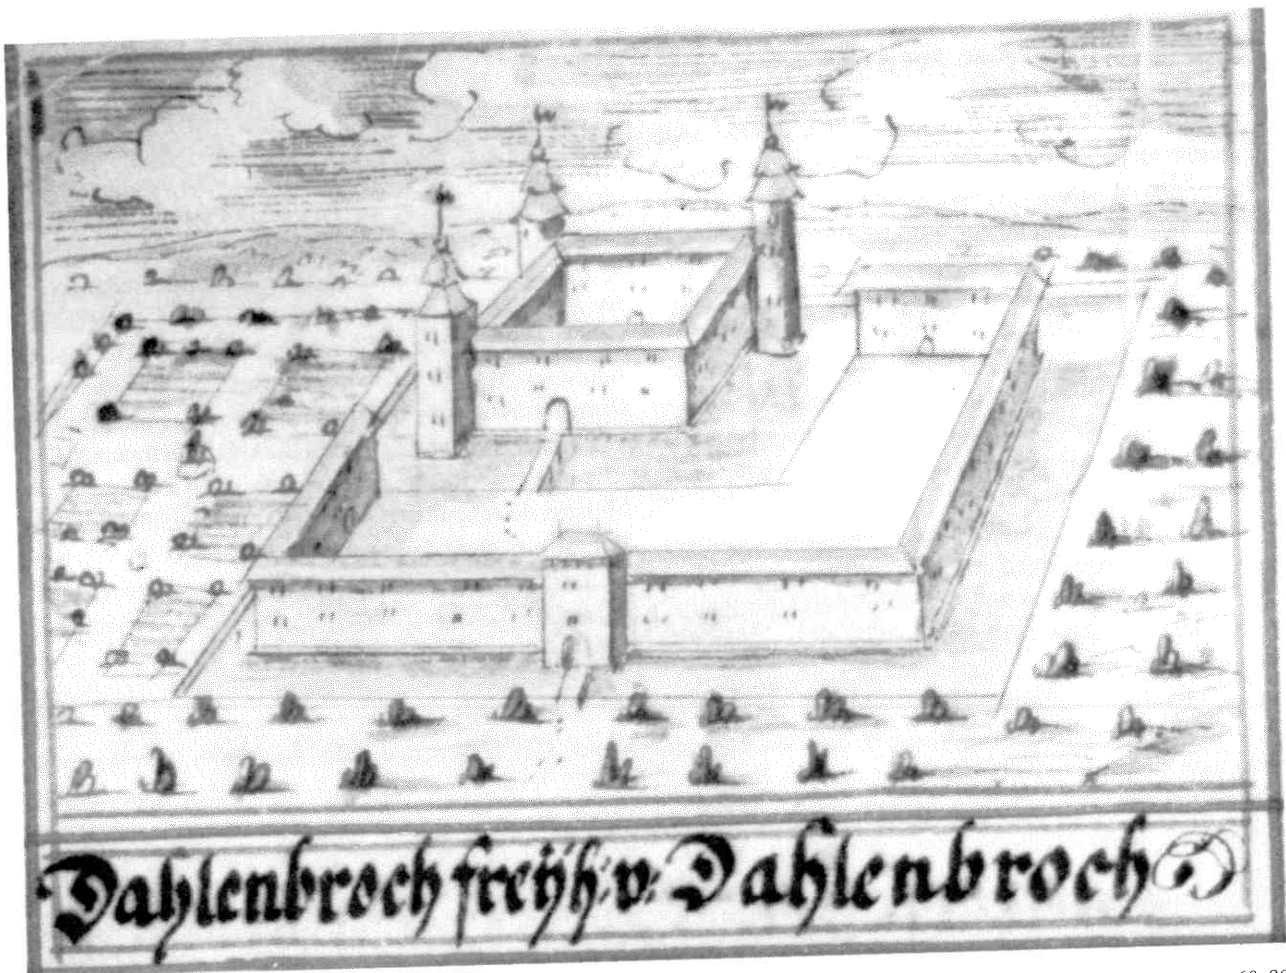 Dahlenbroch freÿh: v: Dahlenbroch